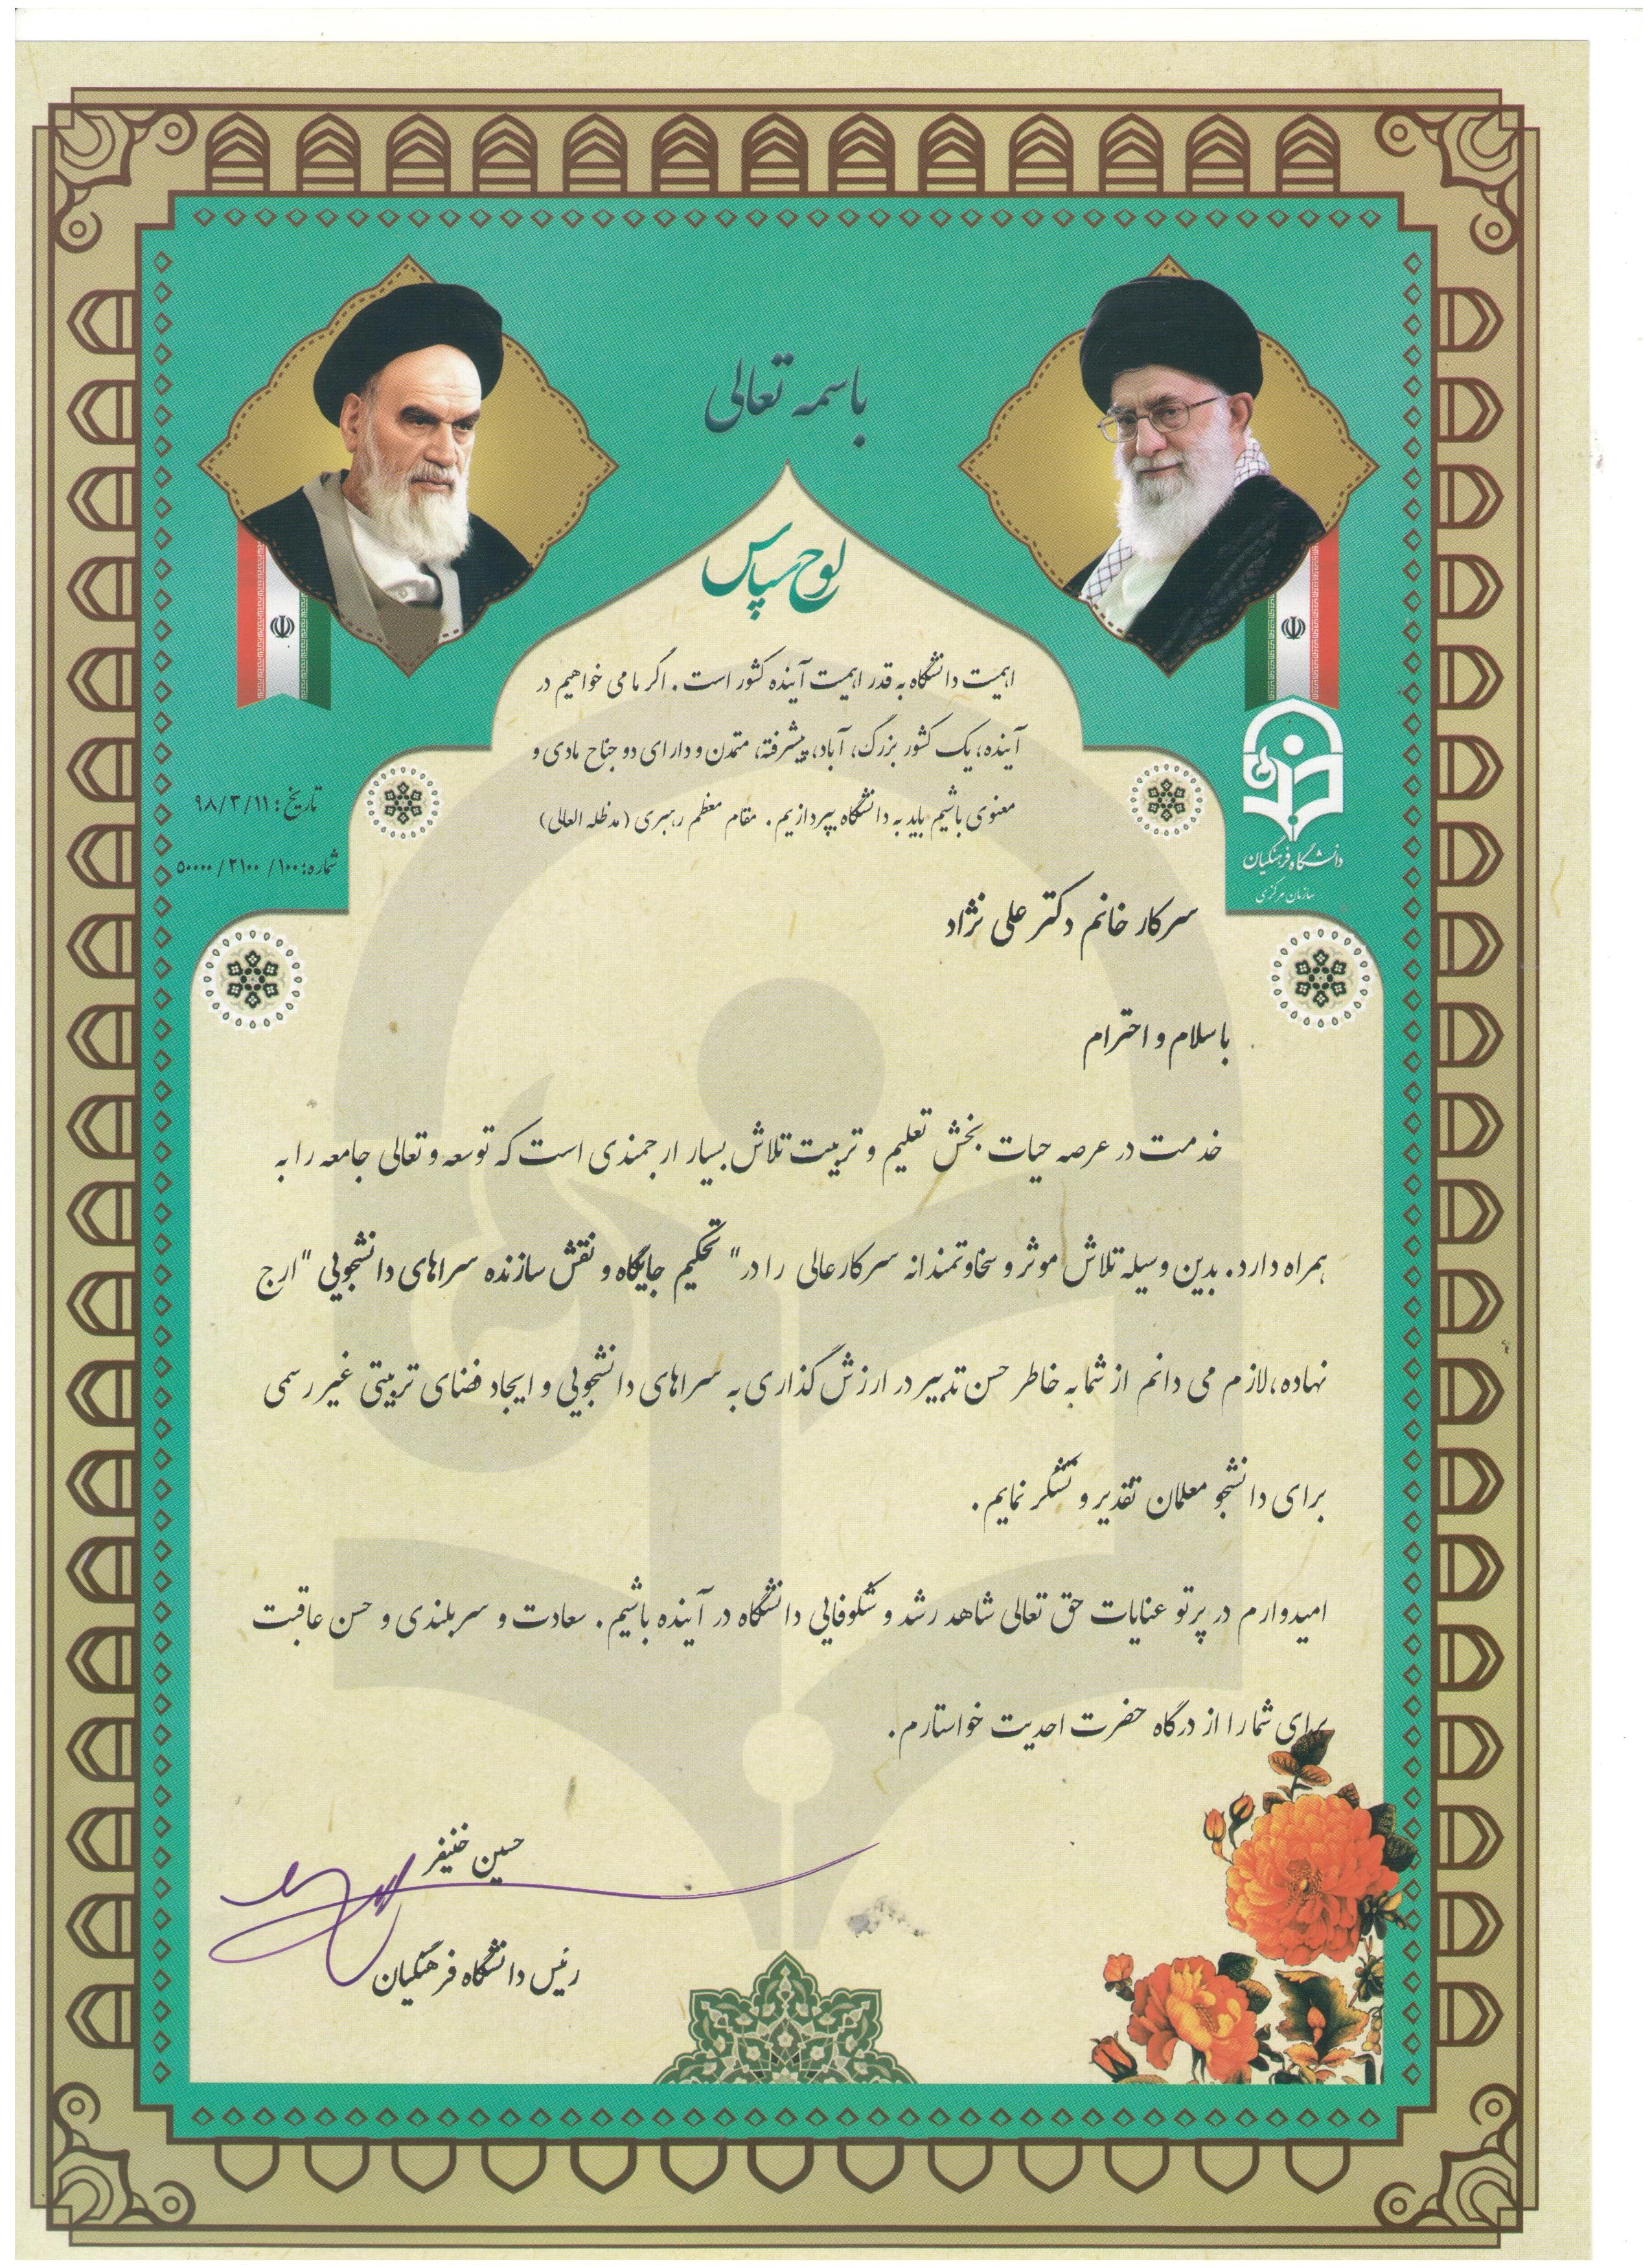 باسمه تعالی
لوح سپاس
اهمیت دانشگاه به قدر اهمیت آینده کشور است. اگر ما می خواهیم در
آینده، یک کشور بزرگ، آباد، پیشرفته، متمدن و دارای دو جناح مادی و
معنوی باشیم باید به دانشگاه بپردازیم. مقام معظم رهبری (مدظله العالی)
تاریخ: ۹۸/۳/۱۱
شماره: ۵۰۰۰۰/۲۱۰۰/۱۰۰
دانشگاه فرهنگیان
سازمان مرکزی
سرکار خانم دکتر علی نژاد
با سلام و احترام
خدمت در عرصه حیات بخش تعلیم و تربیت تلاش بسیار ارجمندی است که توسعه و تعالی جامعه را به
همراه دارد. بدین وسیله تلاش موثر و سخاوتمندانه سرکارعالی را در "تحکیم جایگاه و نقش سازنده سراهای دانشجویی" ارج
نهاده، لازم می دانم از شما به خاطر حسن تدبیر در ارزش گذاری به سراهای دانشجویی و ایجاد فضای تربیتی غیر رسمی
برای دانشجو معلمان تقدیر و تشکر نمایم.
امیدوارم در پرتو عنایات حق تعالی شاهد رشد و شکوفایی دانشگاه در آینده باشیم. سعادت و سربلندی و حسن عاقبت
برای شما را از درگاه حضرت احدیت خواستارم.
حسین خنیفر
رئیس دانشگاه فرهنگیان